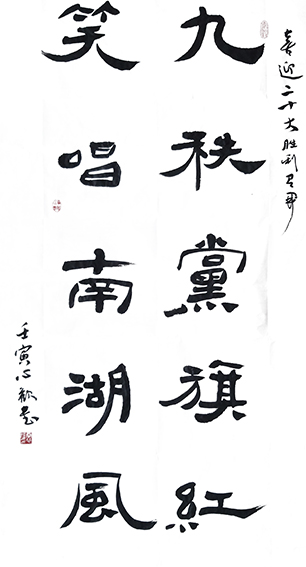 喜迎二十大胜利召开
九秩黨旗紅
笑唱南湖風
壬寅心